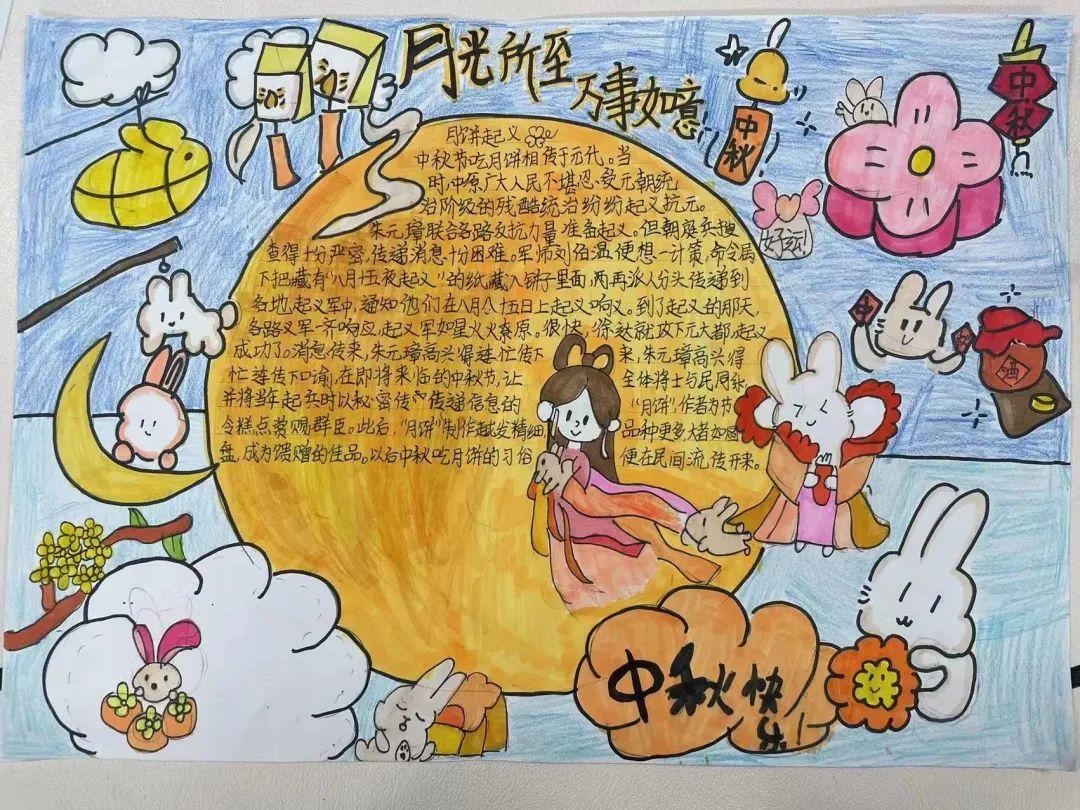 月光所至
万事如意
月饼起义
中秋节吃月饼相传于元代。当
时,中原广大人民不堪忍受元朝统
治阶级的残酷统治纷纷起义抗元。
朱元璋联合各路反抗力量准备起义。但朝庭兵搜
查得十分严密,传递消息十分困难。军师刘伯温便想一计策,命令属
下把藏有“八月十五夜起义”的纸藏入饼子里面,再派人分头传递到
各地起义军中,通知他们在八月十五日上起义响义。到了起义的那天,
各路义军一齐响应,起义军如星火燎原。很快,徐达就攻下元大都,起义
成功了。消息传来,朱元璋高兴得连忙传下来,朱元璋高兴得
忙连传下口谕,在即将来临的中秋节,让全体将士与民同乐,
并将当年起兵时以秘密传传递信息的“月饼”,作者为节
令糕点赏赐群臣。此后,“月饼”制作越发精细品种更多大者如圆
盘,成为馈赠的佳品。以后中秋吃月饼的习俗便在民间流传开来。
中秋
中秋
好运!
酒
中秋快
乐!